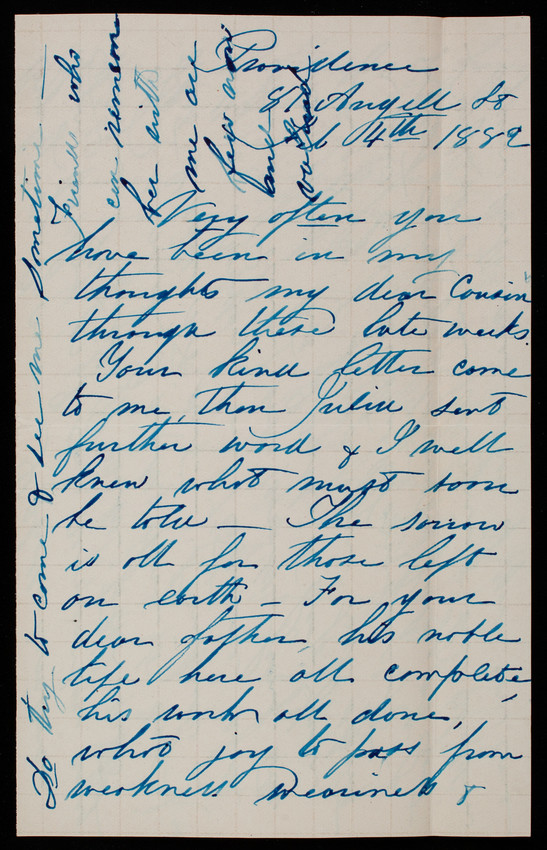 Providence
81 Angell St
4th 1889
Very often you
have been in my
thoughts my dear Cousin
through these late weeks.
Your kind letter came
to me, then Julia sent
further word & I well
knew what must soon
be told — The sorrow
is all for those left
on earth — For your
dear father, his noble
life here all complete,
his work all done,
what joy to pass from
weakness weariness &
Do try to come & see me sometime —
Friends who
can remember
her with
me are
few now
and